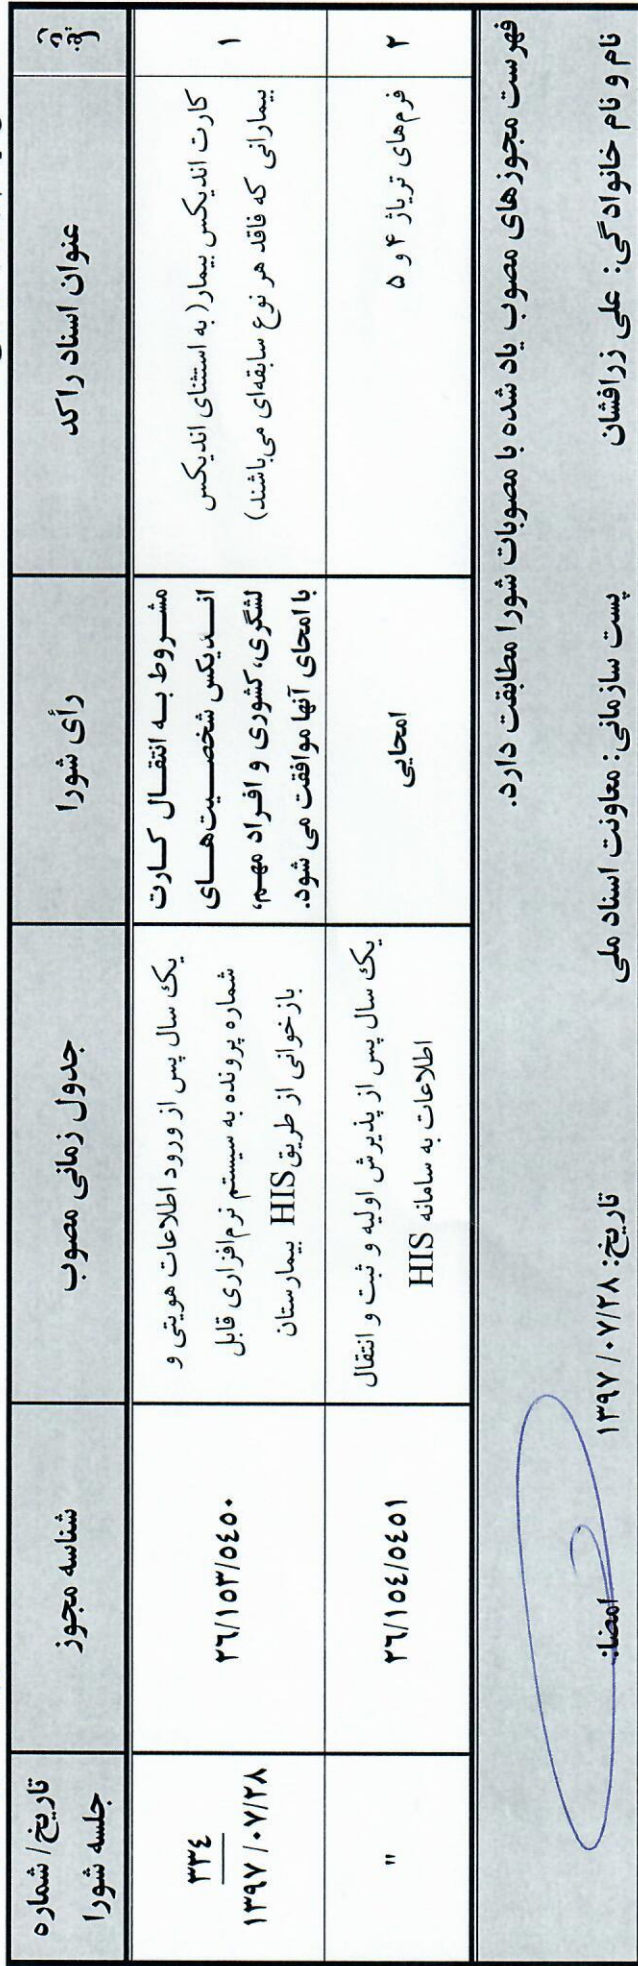 ردیف
عنوان اسناد راکد
رأی شورا
جدول زمانی مصوب
شناسه مجوز
تاریخ/ شماره
جلسه شورا
۱
کارت اندیکس بیمار( به استثنای اندیکس
بیمارانی که فاقد هر نوع سابقه‌ای می‌باشند)
مشروط به انتقال کارت
اندیکس شخصیت‌های
لشگری، کشوری و افراد مهم،
با امحای آنها موافقت می شود.
یک سال پس از ورود اطلاعات هویتی و
شماره پرونده به سیستم نرم‌افزاری قابل
بازخوانی از طریق HIS بیمارستان
۲٦/۱۵۳/۵٤۵۰
۳۳٤
۱۳۹۷/۰۷/۲۸
۲
فرم‌های تریاژ ۴ و ۵
امحایی
یک سال پس از پذیرش اولیه و ثبت و انتقال
اطلاعات به سامانه HIS
۲٦/۱۵٤/۵٤۵۱
"
فهرست مجوزهای مصوب یاد شده با مصوبات شورا مطابقت دارد.
نام و نام خانوادگی: علی زرافشان پست سازمانی: معاونت اسناد ملی تاریخ: ۱۳۹۷/۰۷/۲۸ امضا: